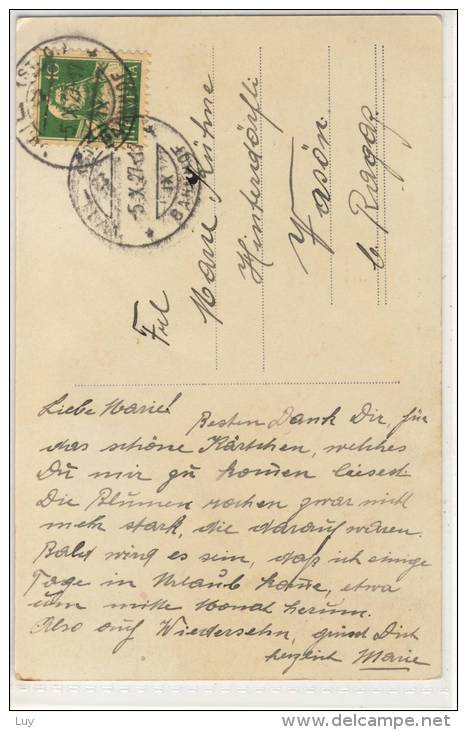 10
HELVETIA
WIL (ST. G.)
-5.X.27
BAHNHOF
Frl
Marie Kühne
Hinterdörfli
Vasön
b. Ragaz
Liebe Marie!
Besten Dank Dir, für
das schöne Kärtchen, welches
Du mir zu komen liesest
Die Blumen rochen zwar nicht
meh stark, die darauf waren.
Bald wird es sein, daß ich einige
Tage in Urlaub kome, etwa
um mitte Monat herum.
Also auf Wiedersehn, grüsst Dich
herzlich Marie
Luy
www.delcampe.net